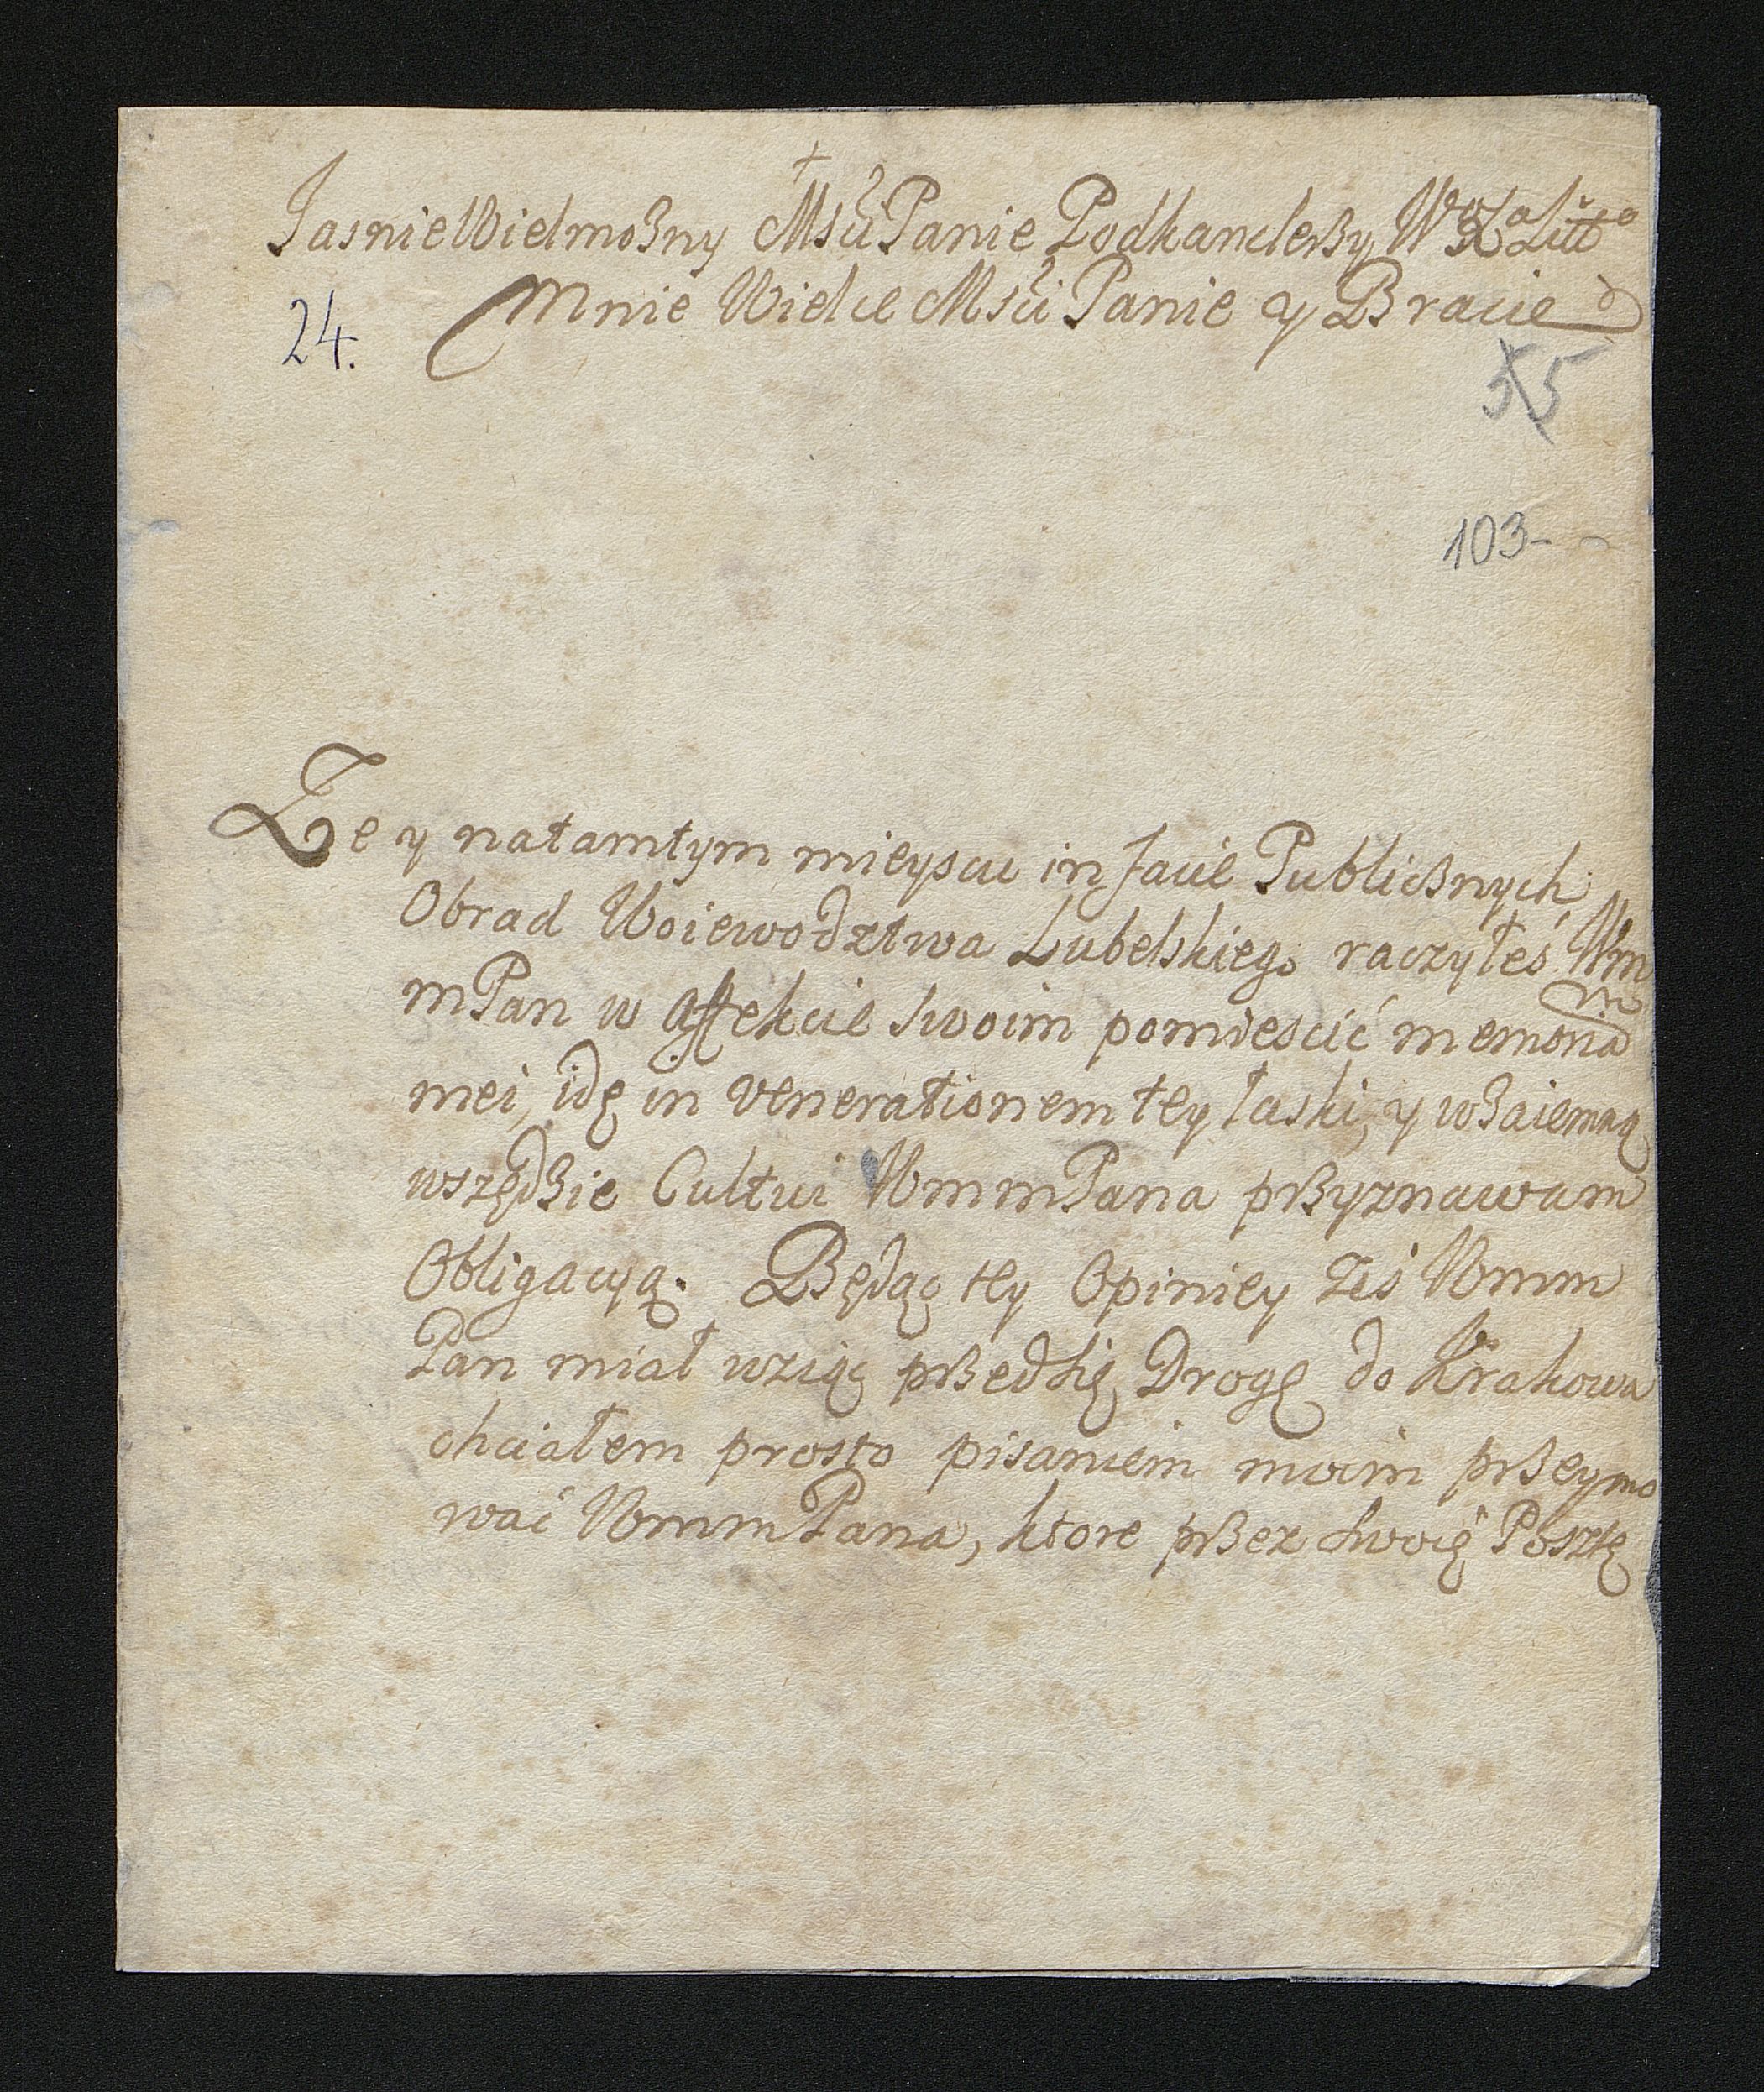 +
JasnieWielmożny Mśći Panie Podkanclerzy W° X° Litt°
Mnie Wielce Mśći Panie y Bracie
24.
55
103-
Ze y natamtym mieyscu in facie Publicznych
Obrad Woiewodztwa Lubelskiego raczyłeś Wm
mPan w affekcie swoim pomieścić memoriā
mei, idę in venerationem tey łaski, y wzaiemną
wszędzie Cultui WmmPana przyznawam
Obligacyą. Będąc tey Opiniey żeś Wmm
Pan miał wziąć przedsię Drogę do Krakowa
chciałem prosto pisaniem moim przeymo
wać WmmPana, ktore przez swoię Posztę